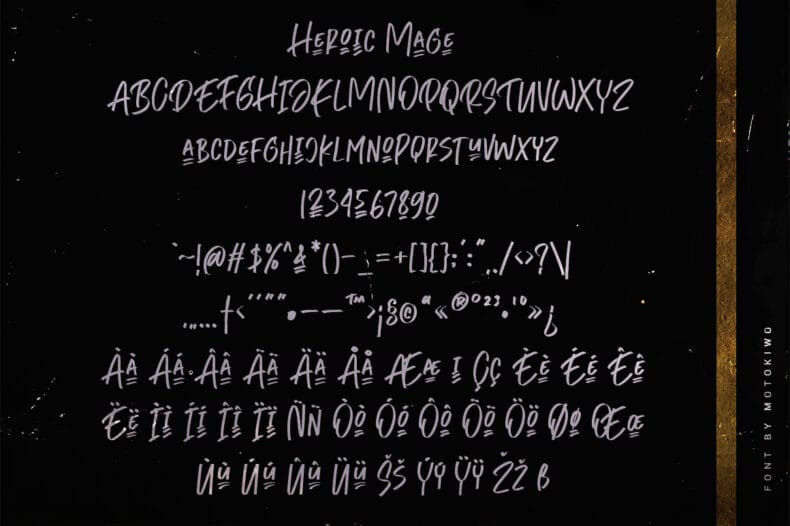 Heroic Mage
ABCDEFGHIJKLMNOPQRSTUVWXYZ
ABCDEFGHIJKLMNOPQRSTUVWXYZ
1234567890
`~!@#$%^&*()-_=+[]{};':",./<>?\|
‚„…†‹‘’“”•–—™›¡§©ª«®°²³·¹º»¿
Àà Áá Ââ Ãã Ää Åå Ææ ı Çç Èè Éé Êê
Ëë Ìì Íí Îî Ïï Ññ Òò Óó Ôô Õõ Öö Øø Œœ
Ùù Úú Ûû Üü Šš Ýý Ÿÿ Žž ß
FONT BY MOTOKIWO